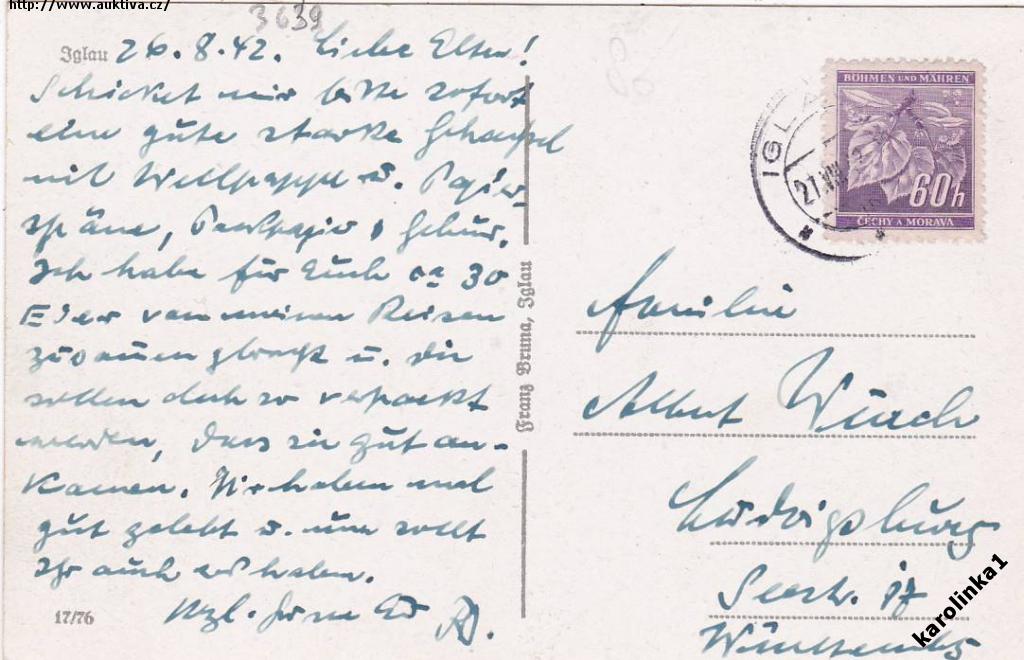 http://www.auktiva.cz/
3639
Iglau 26.8.42. Liebe Eltern!
Schicket mir bitte sofort
eine gute starke Schachtel
mit Wellpappe u. Papier-
späne, Packpapier, Schnur.
Ich habe für Euch ca 30
Eier von meinen Reisen
zusammengebracht u. die
sollen doch so verpackt
werden, dass sie gut an-
kamen. Wir haben mal
gut gelebt u. nun sollt
Ihr auch es haben.
Hzl. Grüsse
17/76
Franz Bruna, Iglau
BÖHMEN UND MÄHREN
60h
ČECHY A MORAVA
IGLA
27.VIII
Familie
Albert
Ludwigsburg
Seestr. 17
Württembg
karolinka1